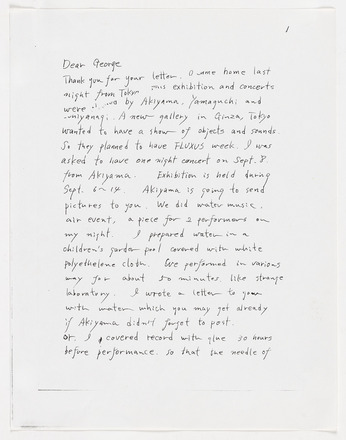 1
Dear George
Thank you for your letter. I came home last
night from Tokyo this exhibition and concerts
were by Akiyama, Yamaguchi and
A new gallery in Ginza, Tokyo
wanted to have a show of objects and sounds.
So they planned to have FLUXUS week. I was
asked to have one night concert on Sept. 8.
from Akiyama. Exhibition is held during
Sept. 6~14. Akiyama is going to send
pictures to you. We did water music,
air event, a piece for 2 performers on
my night. I prepared water in a
children's garden pool covered with white
polyethelene cloth. We performed in various
way for about 50 minutes, like strange
laboratory. I wrote a letter to you
with water which you may get already
if Akiyama didn't forgot to post.
or. I covered record with glue 30 hours
before performance. so that the needle of